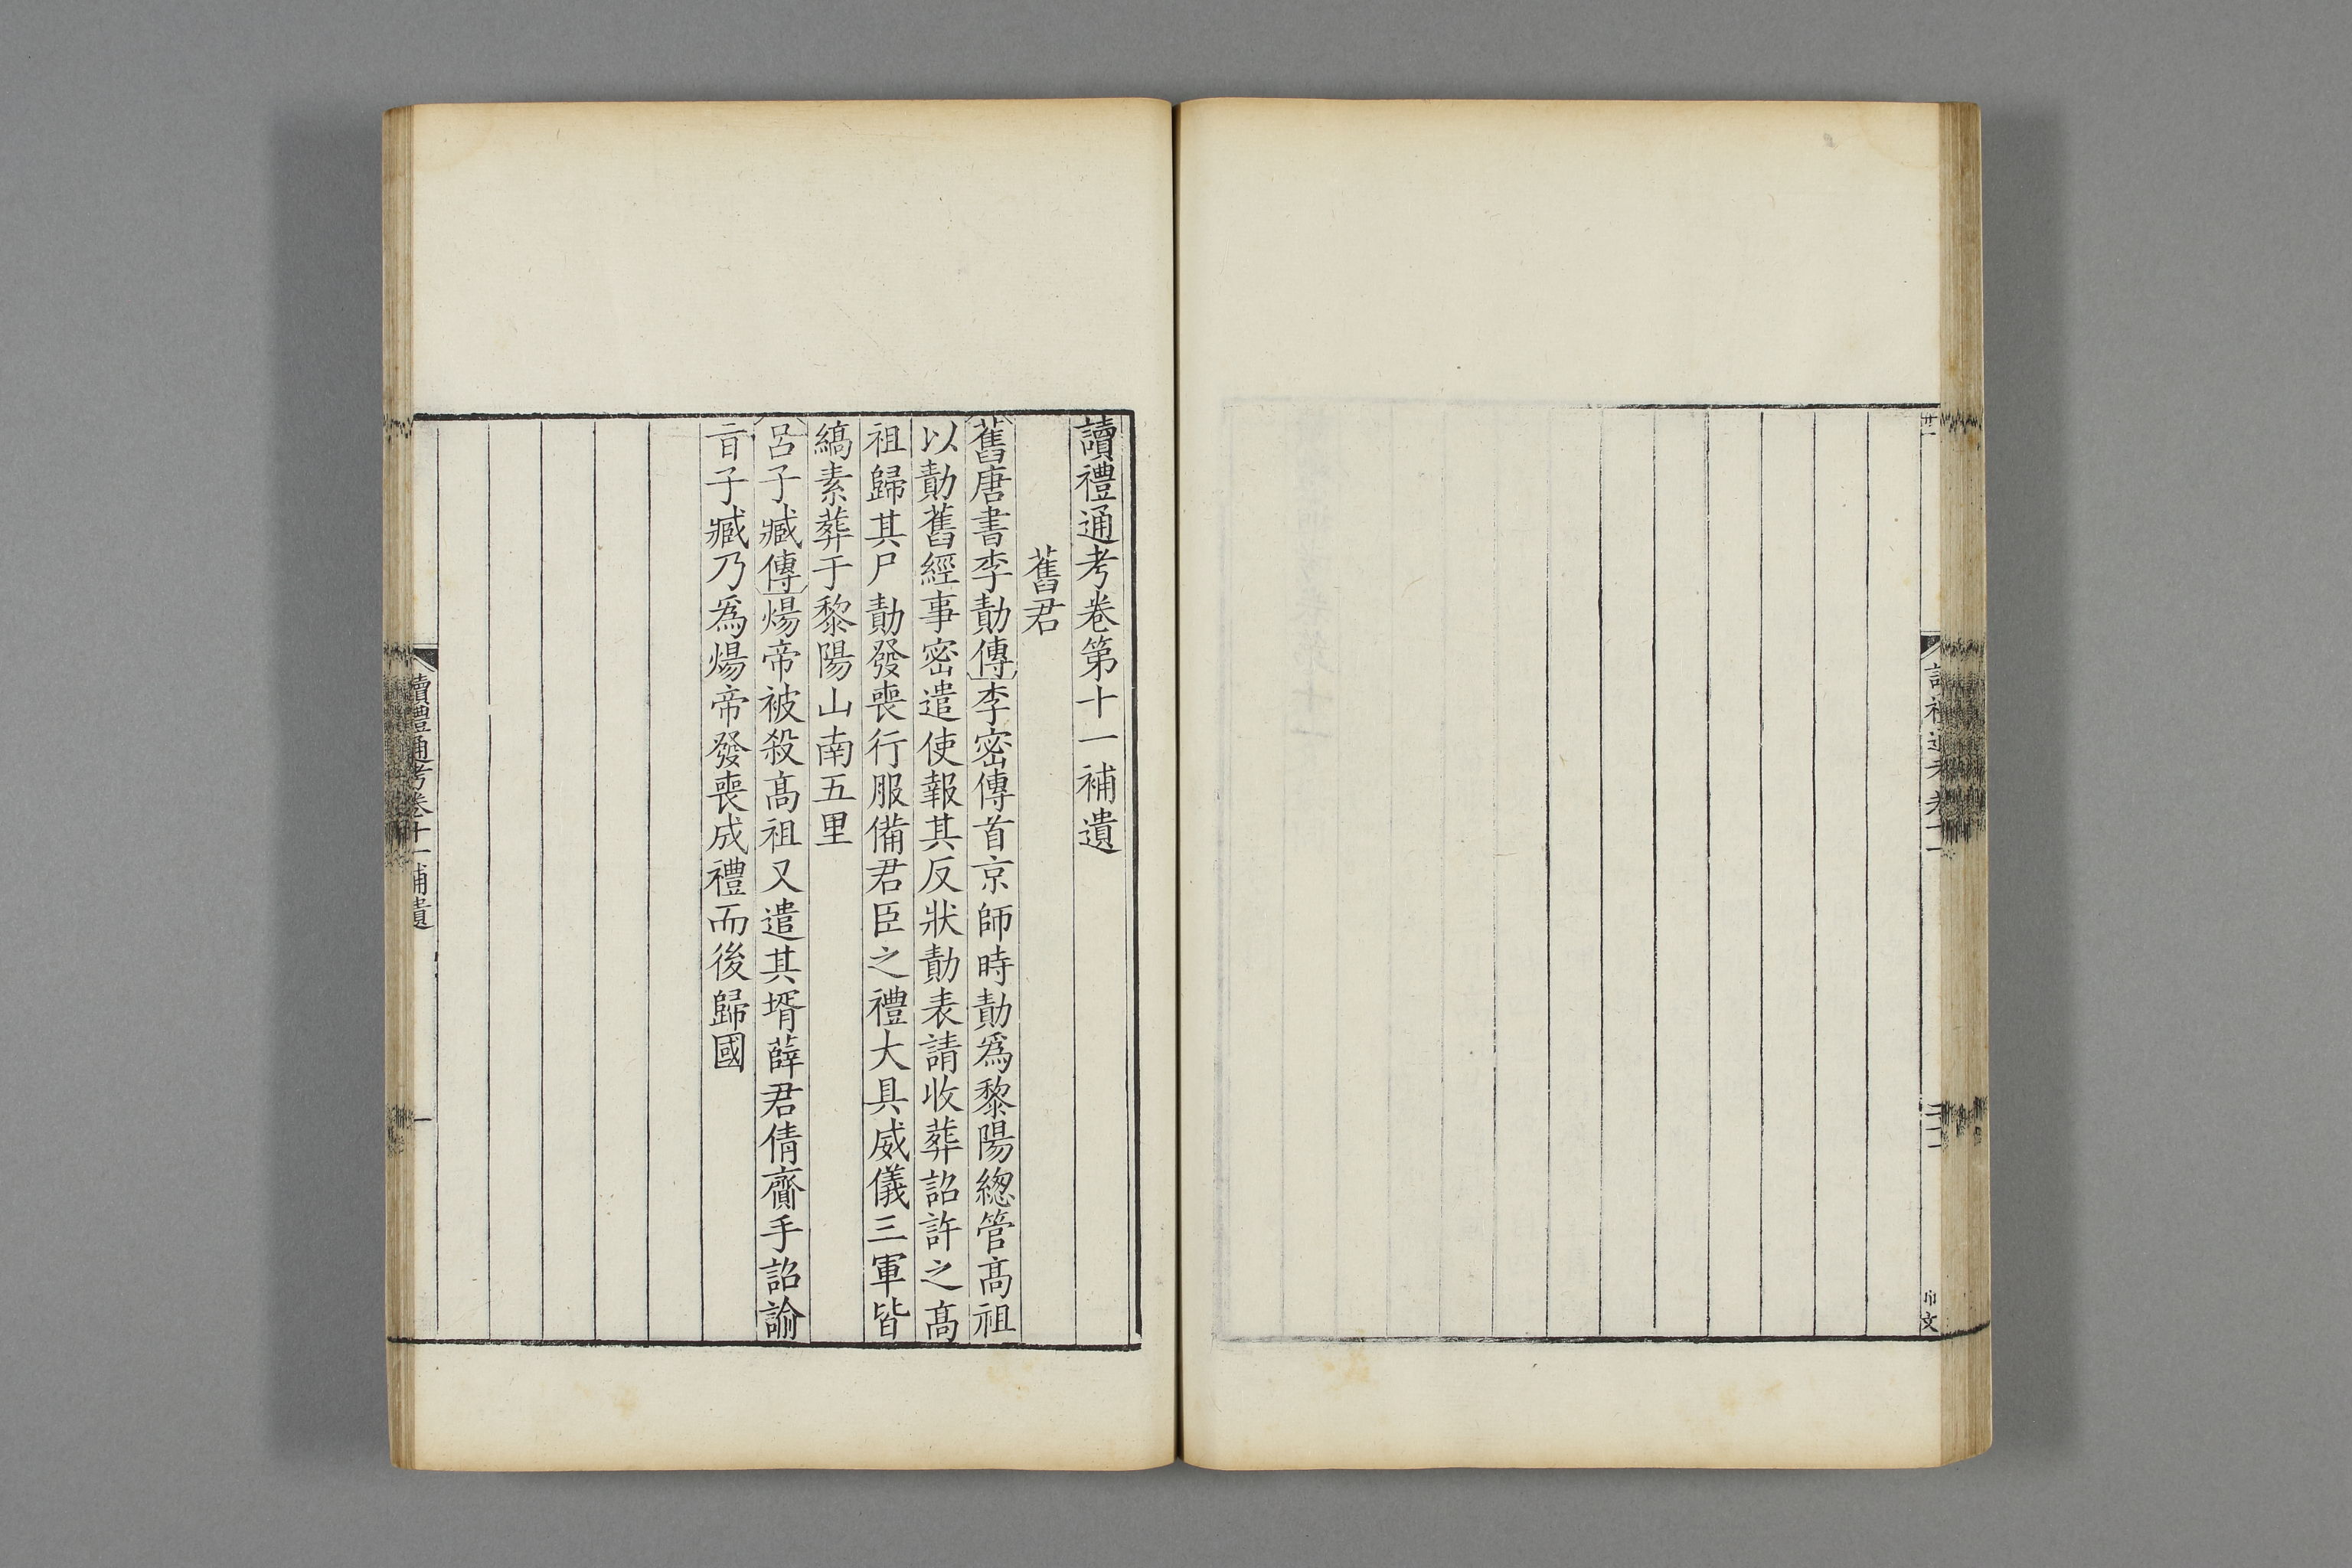 讀禮通考卷第十一補遺
舊君
舊唐書李勣傳李密傳首京師時勣爲黎陽總管高祖
以勣舊經事密遣使報其反狀勣表請收葬詔許之高
祖歸其尸勣發喪行服備君臣之禮大具威儀三軍皆
縞素葬于黎陽山南五里
呂子臧傳煬帝被殺高祖又遣其壻薛君倩齎手詔諭
㫖子臧乃爲煬帝發喪成禮而後歸國
讀禮通考卷十一補遺
一